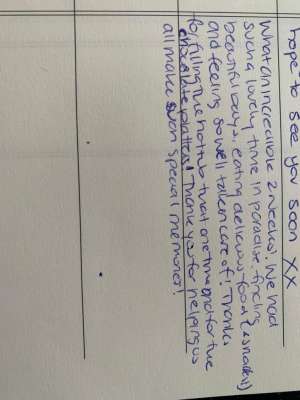 hope to see you soon XX
What an incredible 2 weeks! We had
such a lovely time in paradise finding
beautiful bays, eating delicious food (& snacks!)
and feeling so well taken care of! Thanks
for filling the hot tub that one time and for the
chocolate platters! Thank you for helping us
all make such special memories!